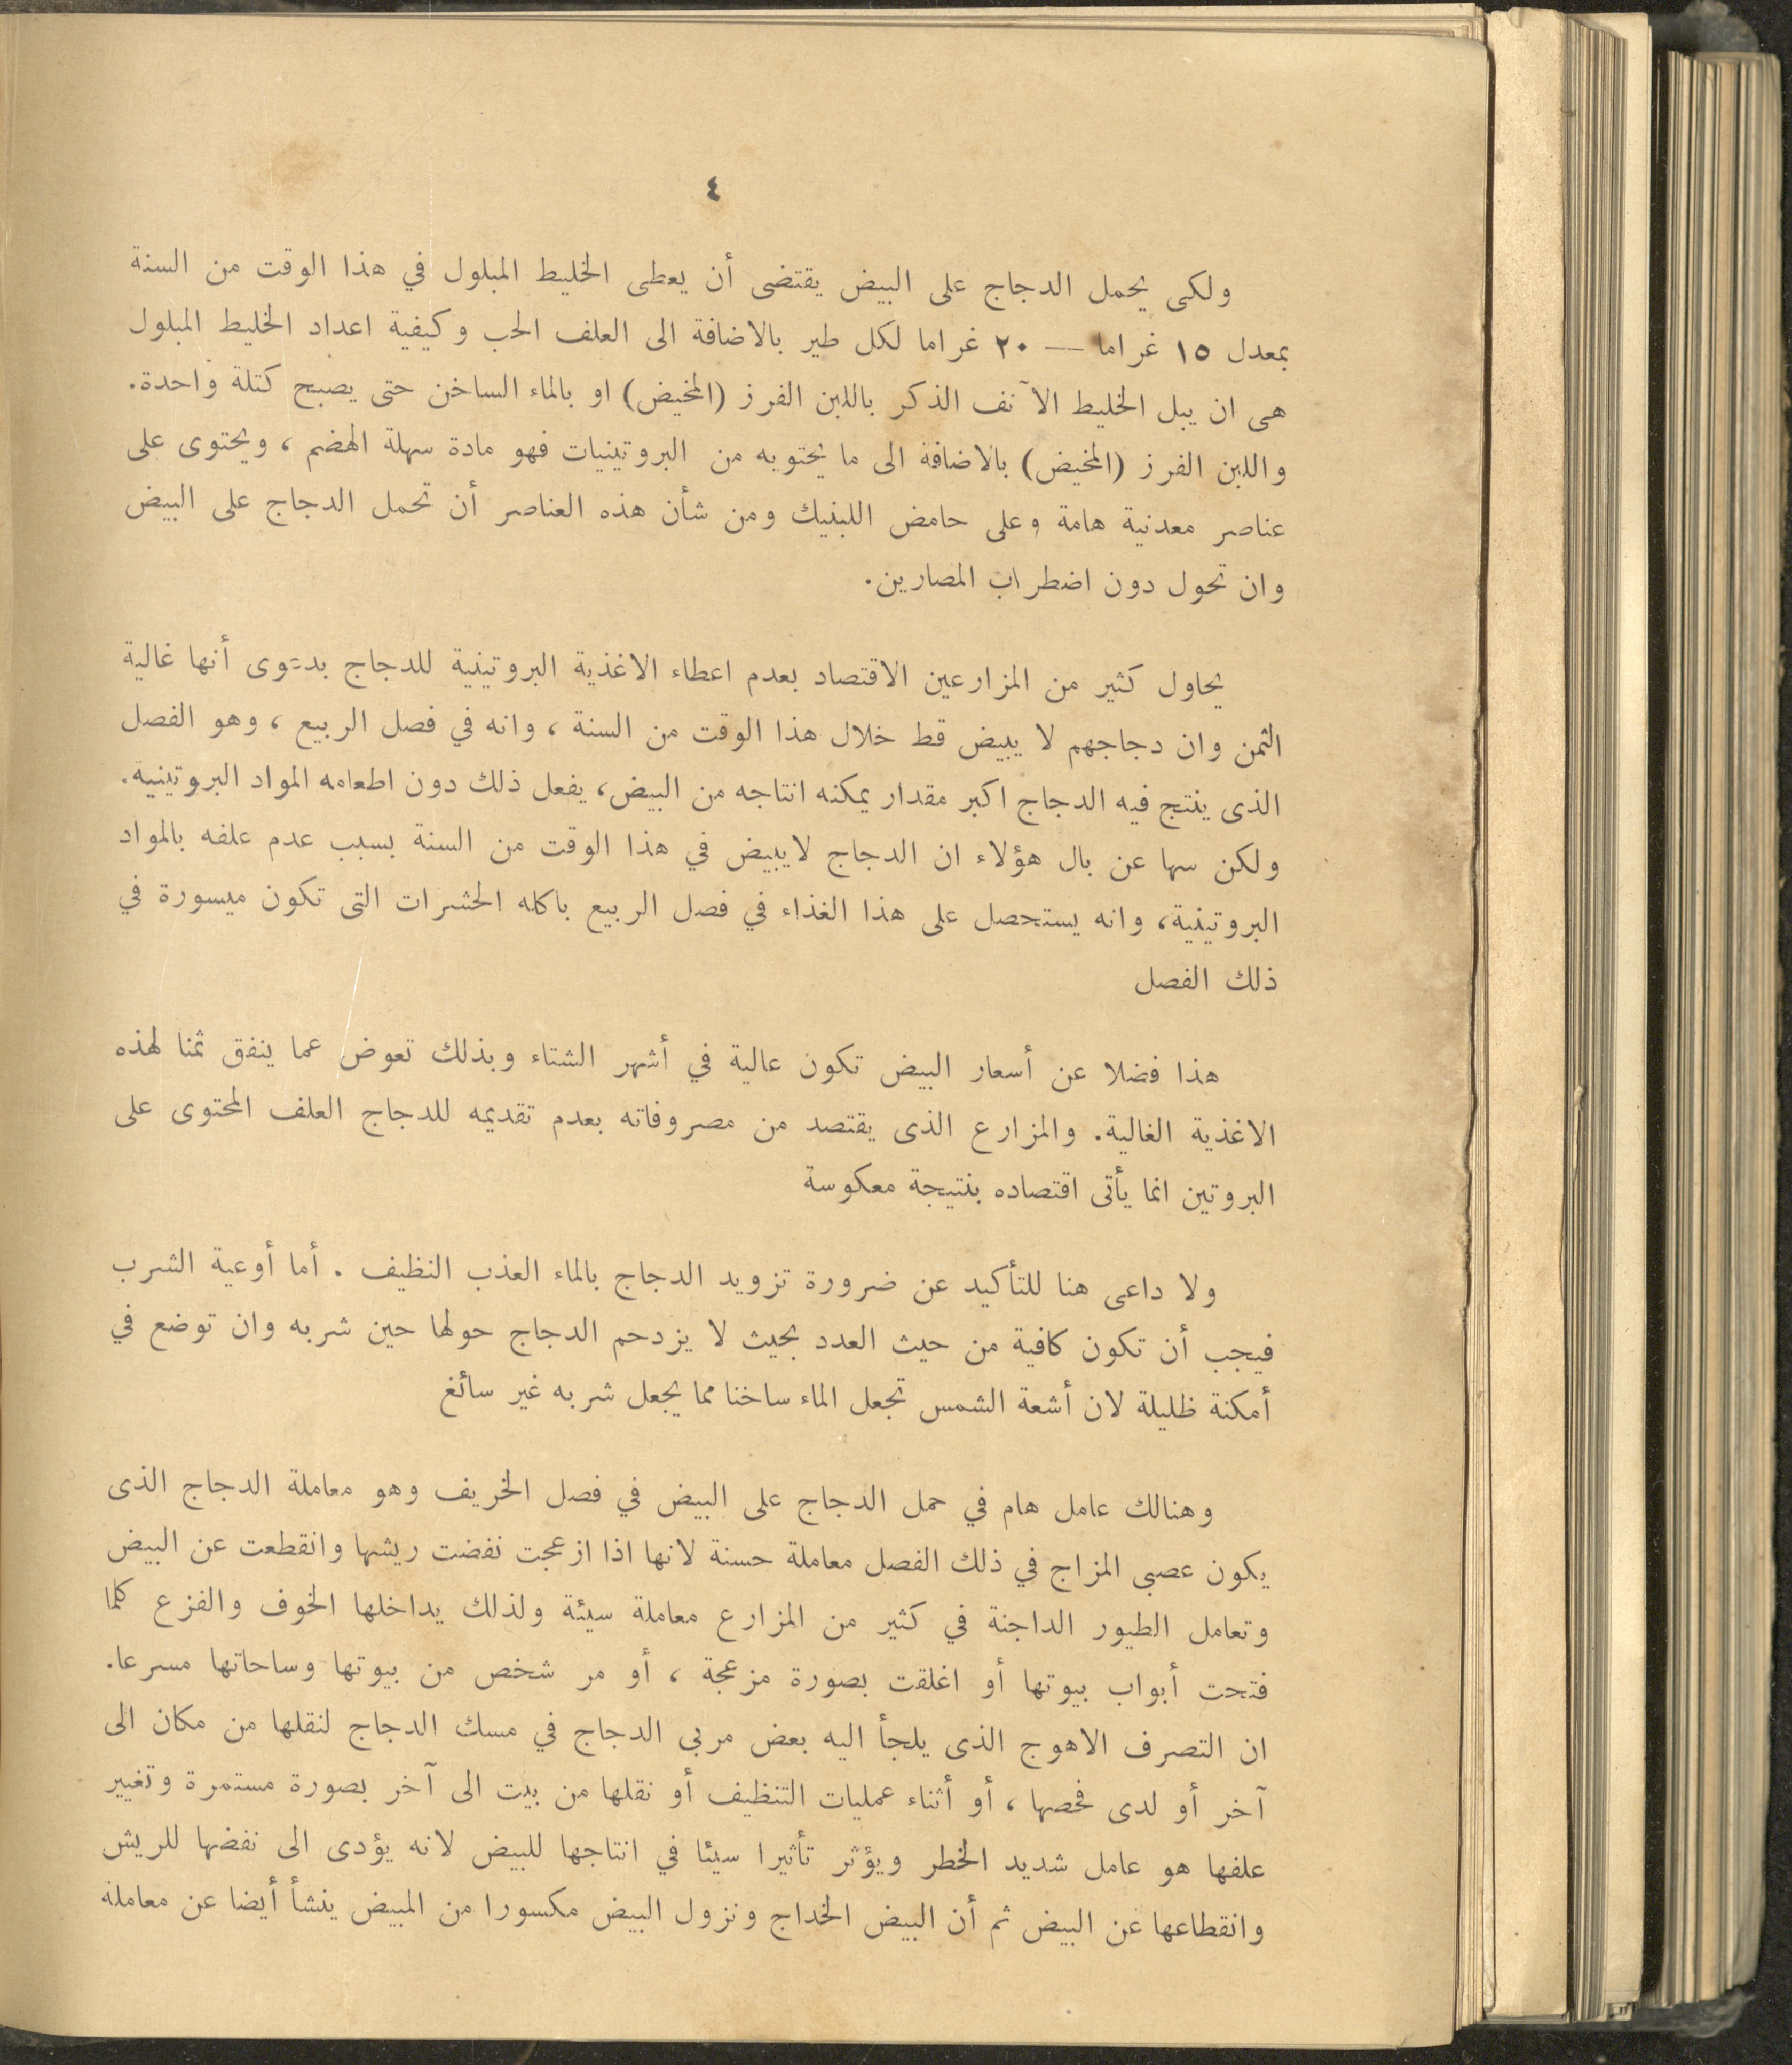 ٤
ولكى يحمل الدجاج على البيض يقتضى أن يعطى الخليط المبلول في هذا الوقت من السنة
بمعدل ١٥ غراما — ٢٠ غراما لكل طير بالاضافة الى العلف الحب وكيفية اعداد الخليط المبلول
هى ان يبل الخليط الآنف الذكر باللبن الفرز (المخيض) او بالماء الساخن حتى يصبح كتلة واحدة.
واللبن الفرز (المخيض) بالاضافة الى ما يحتويه من البروتينيات فهو مادة سهلة الهضم ، ويحتوى على
عناصر معدنية هامة وعلى حامض اللبنيك ومن شأن هذه العناصر أن تحمل الدجاج على البيض
وان تحول دون اضطراب المصارين.
يحاول كثير من المزارعين الاقتصاد بعدم اعطاء الاغذية البروتينية للدجاج بدعوى أنها غالية
الثمن وان دجاجهم لا يبيض قط خلال هذا الوقت من السنة ، وانه في فصل الربيع ، وهو الفصل
الذى ينتج فيه الدجاج اكبر مقدار يمكنه انتاجه من البيض، يفعل ذلك دون اطعامه المواد البروتينية.
ولكن سها عن بال هؤلاء ان الدجاج لايبيض في هذا الوقت من السنة بسبب عدم علفه بالمواد
البروتينية، وانه يستحصل على هذا الغذاء في فصل الربيع باكله الحشرات التى تكون ميسورة في
ذلك الفصل
هذا فضلا عن أسعار البيض تكون عالية في أشهر الشتاء وبذلك تعوض عما ينفق ثمنا لهذه
الاغذية الغالية. والمزارع الذى يقتصد من مصروفاته بعدم تقديمه للدجاج العلف المحتوى على
البروتين انما يأتى اقتصاده بنتيجة معكوسة
ولا داعى هنا للتأكيد عن ضرورة تزويد الدجاج بالماء العذب النظيف . أما أوعية الشرب
فيجب أن تكون كافية من حيث العدد بحيث لا يزدحم الدجاج حولها حين شربه وان توضع في
أمكنة ظليلة لان أشعة الشمس تجعل الماء ساخنا مما يجعل شربه غير سائغ
وهنالك عامل هام في حمل الدجاج على البيض في فصل الخريف وهو معاملة الدجاج الذى
يكون عصبى المزاج في ذلك الفصل معاملة حسنة لانها اذا ازعجت نفضت ريشها وانقطعت عن البيض
وتعامل الطيور الداجنة في كثير من المزارع معاملة سيئة ولذلك يداخلها الخوف والفزع كلما
فتحت أبواب بيوتها أو اغلقت بصورة مزعجة ، أو مر شخص من بيوتها وساحاتها مسرعا.
ان التصرف الاهوج الذى يلجأ اليه بعض مربى الدجاج في مسك الدجاج لنقلها من مكان الى
آخر أو لدى فحصها ، أو أثناء عمليات التنظيف أو نقلها من بيت الى آخر بصورة مستمرة وتغيير
علفها هو عامل شديد الخطر ويؤثر تأثيرا سيئا في انتاجها للبيض لانه يؤدى الى نفضها للريش
وانقطاعها عن البيض ثم أن البيض الخداج ونزول البيض مكسورا من المبيض ينشأ أيضا عن معاملة